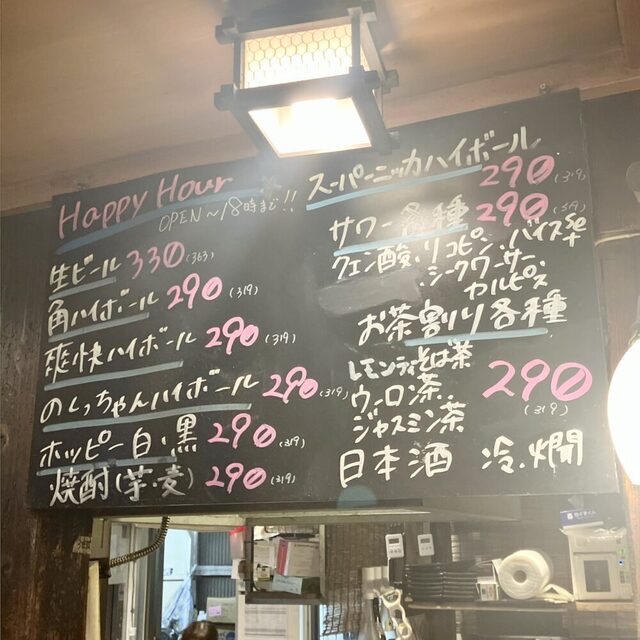 Happy Hour
OPEN〜18時まで!!
生ビール 330(363)
角ハイボール 290(319)
爽快ハイボール 290(319)
のしちゃんハイボール 290(319)
ホッピー白・黒 290(319)
焼酎(芋・麦) 290(319)
スーパーニッカハイボール 290(319)
サワー各種 290(319)
クエン酸・リコピン・バイス
シークワーサー・
カルピス
お茶割り各種
レモンティ
ウーロ茶・
ジャスミン茶
290
(319)
日本酒 冷・燗